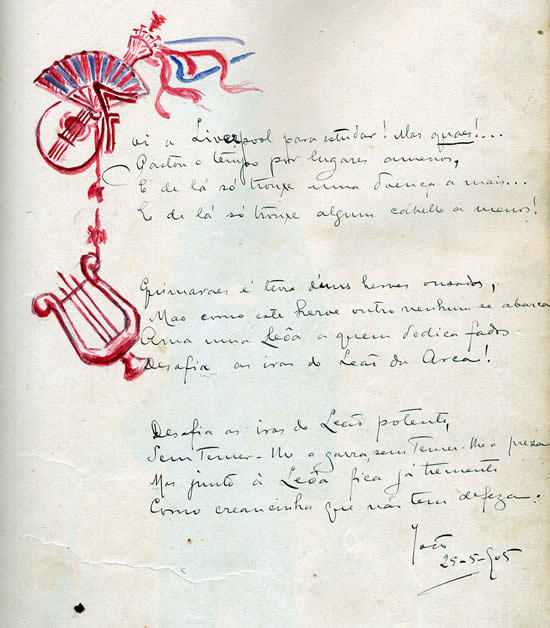 Foi a Liverpool para estudar! Mas quaes!...
Passou o tempo por lugares amenos,
E de lá só trouxe uma doença a mais...
E de lá só trouxe algum cabello a menos!
Guimarães é terra d'uns heroes ousados,
Mas como este heroe outro nenhum se abarca
Ama uma Leôa a quem dedica fados
Desafia as iras do Leão da Arca!
Desafia as iras do Leão potente,
Sem temer-lhe a garra, sem temer-lhe a preza
Mas junto á Leôa fica já tremente
Como creancinha que não tem defeza.
João
25-5-905